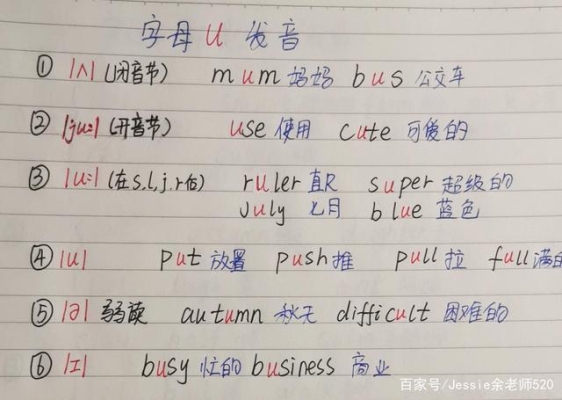 字母 U 发音
① |ʌ| (闭音节) mum 妈妈 bus 公交车
② |ju:| (开音节) use 使用 cute 可爱的
③ |u:| (在s.l,j.r后) ruler 直尺 super 超级的
July 七月 blue 蓝色
④ |u| put 放置 push 推 pull 拉 full 满的
⑤ |ə| 弱读 autumn 秋天 difficult 困难的
⑥ |ɪ| busy 忙的 business 商业
百家号/Jessie余老师520